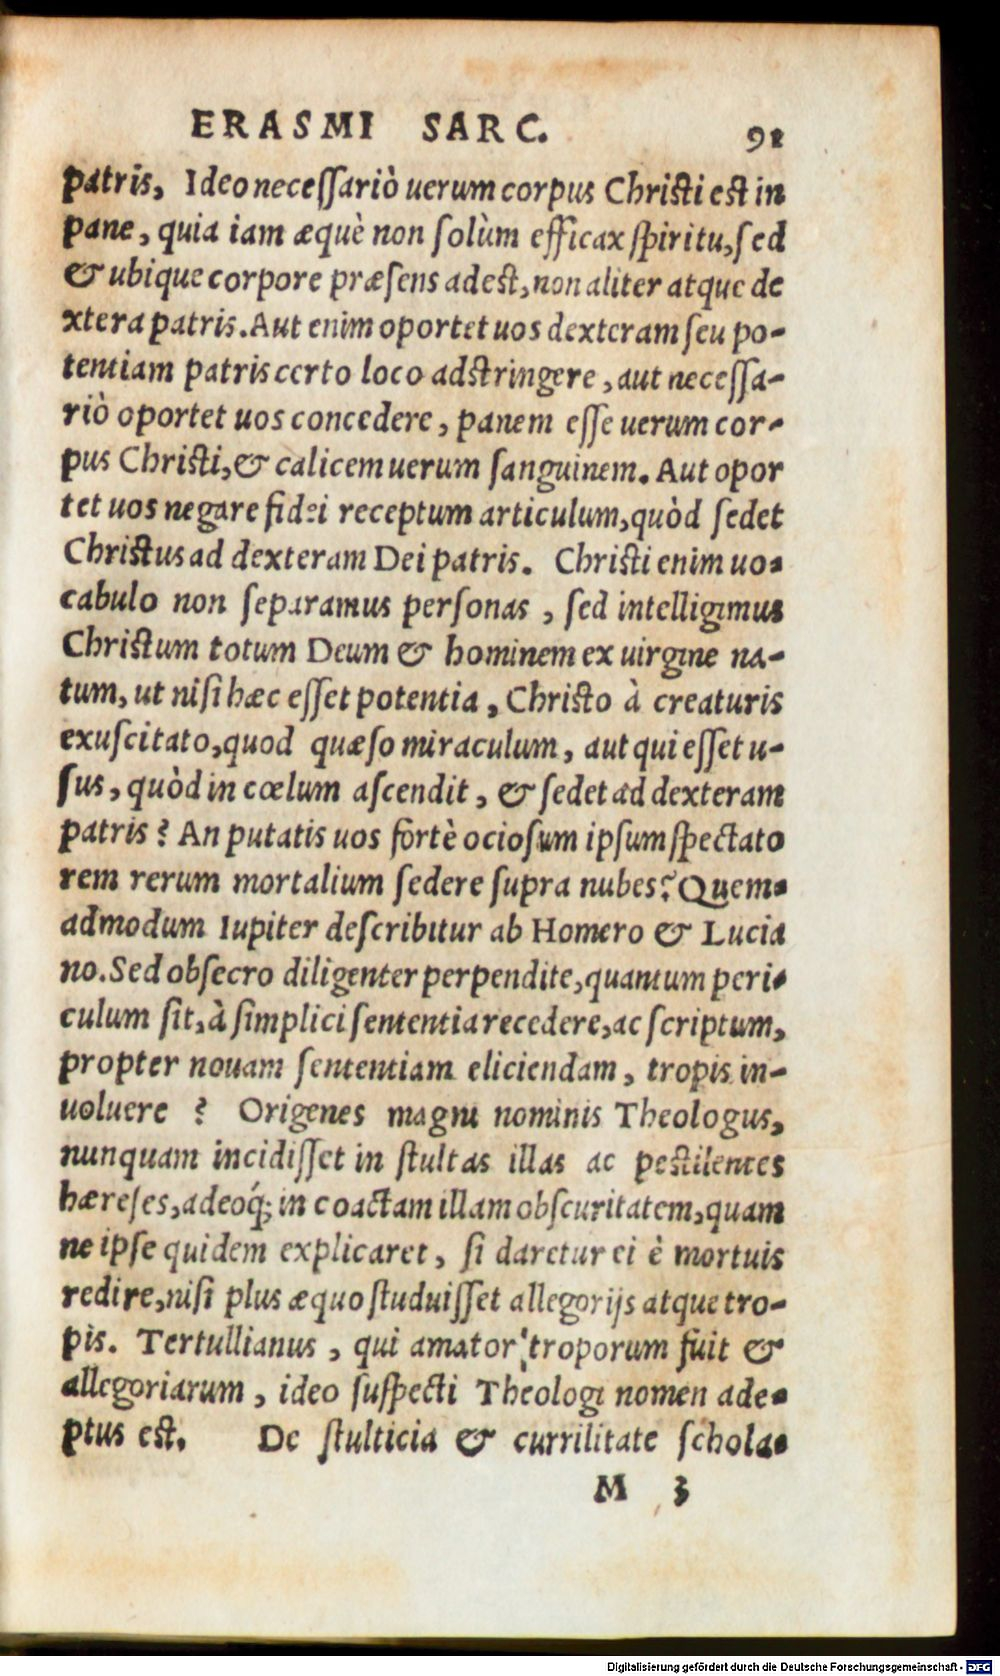 ERASMI SARC. 91
patris, Ideo necessariò uerum corpus Christi est in
pane, quia iam æquè non solùm efficax spiritu, sed
& ubique corpore præsens adest, non aliter atque de
xtera patris. Aut enim oportet uos dexteram seu po-
tentiam patris certo loco adstringere, aut necessa-
riò oportet uos concedere, panem esse uerum cor-
pus Christi, & calicem uerum sanguinem. Aut opor
tet uos negare fidei receptum articulum, quòd sedet
Christus ad dexteram Dei patris. Christi enim uo-
cabulo non separamus personas, sed intelligimus
Christum totum Deum & hominem ex uirgine na-
tum, ut nisi hæc esset potentia, Christo à creaturis
exuscitato, quod quæso miraculum, aut qui esset u-
sus, quòd in cœlum ascendit, & sedet ad dexteram
patris? An putatis uos fortè ociosum ipsum spectato
rem rerum mortalium sedere supra nubes? Quem-
admodum Iupiter describitur ab Homero & Lucia
no. Sed obsecro diligenter perpendite, quantum peri-
culum sit, à simplici sententia recedere, ac scriptum,
propter nouam sententiam eliciendam, tropis in-
uoluere? Origenes magni nominis Theologus,
nunquam incidisset in stultas illas ac pestilentes
hæreses, adeoq́; in coactam illam obscuritatem, quam
ne ipse quidem explicaret, si daretur ei è mortuis
redire, nisi plus æquo studuisset allegorijs atque tro-
pis. Tertullianus, qui amator troporum fuit &
allegoriarum, ideo suspecti Theologi nomen ade-
ptus est. De stulticia & currilitate schola-
M 3
Digitalisierung gefördert durch die Deutsche Forschungsgemeinschaft - DFG